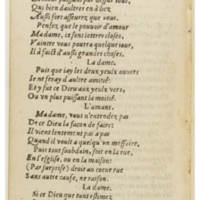 Qui bien d'aultres en a bien,
Aussi fort asseurez que vous.
Pensez, que le pouvoir d'amour
Madame, ce sont lettres closes,
Vaincre vous pourra quelque iour,
Il a faict d'aussi grandes choses.
La dame.
Puis que i'ay les deux yeulx ouvers
Je ne feray d'autre amitié:
Et y fut ce Dieu aux yeulx vers,
Ou en plus puissant la moitié.
L'amant.
Madame, vous n'entendez pas
De ce Dieu la façon de faire:
Il vient lentement pas à pas
Quand il veult a quelque un meffaire,
Puis tout soubdain, soit en rue,
En l'esglise, ou en la maison:
(Par surprise) droict au cueur rue
Sans autre cause, ne raison.
La dame.
Si ce Dieu que tant estimez